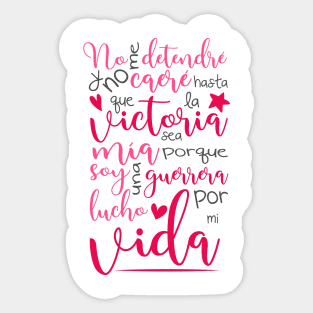 No me detendré
y no caeré hasta
que la
victoria
sea
mía porque
soy una guerrera
lucho por
mi
vida